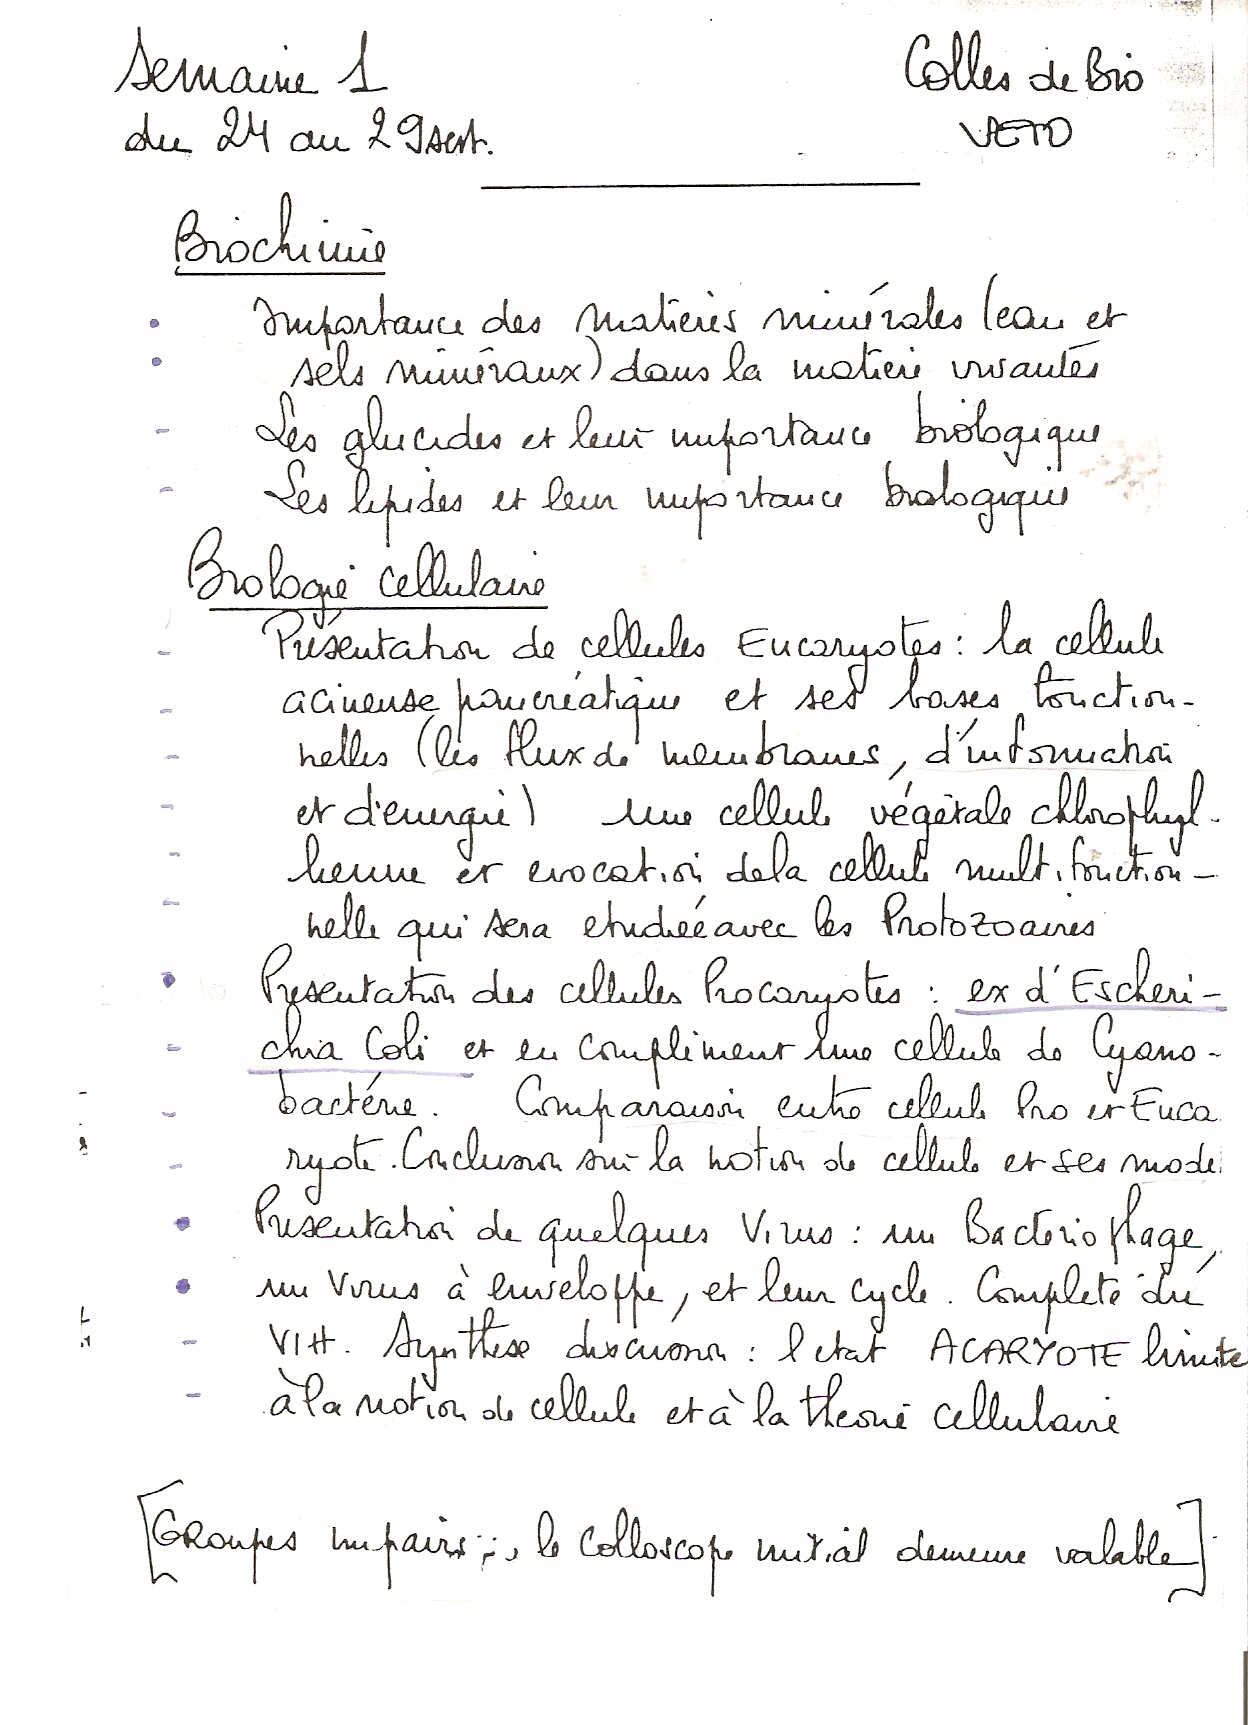 Semaine 1
Colles de Bio
du 24 au 29 sept.
VETO
Biochimie
• Importance des matières minérales (eau et
• sels minéraux) dans la matière vivantes
- Les glucides et leur importance biologique
- Les lipides et leur importance biologique
Biologie cellulaire
- Présentation de cellules Eucaryotes : la cellule
- acineuse pancréatique et ses bases fonction-
- nelles (les flux de membranes, d'information
- et d'energie) une cellule végétale chlorophyl-
- lienne et evocation de la cellule multifonction-
- nelle qui sera etudiée avec les Protozoaires
• Presentation des cellules Procaryotes : ex d'Escheri-
- chia Coli et en complément une cellule de Cyano-
- bactérie. Comparaison entre cellule Pro et Euca
- ryote. Conclusion sur la notion de cellule et ses mode
• Presentation de quelques Virus : un Bacteriophage,
• un Virus à enveloppe, et leur cycle. Complété du
- VIH. Synthèse discussion : l'etat ACARYOTE limite
- à la notion de cellule et à la théorie cellulaire
[Groupes impairs ; le Colloscope initial demeure valable]